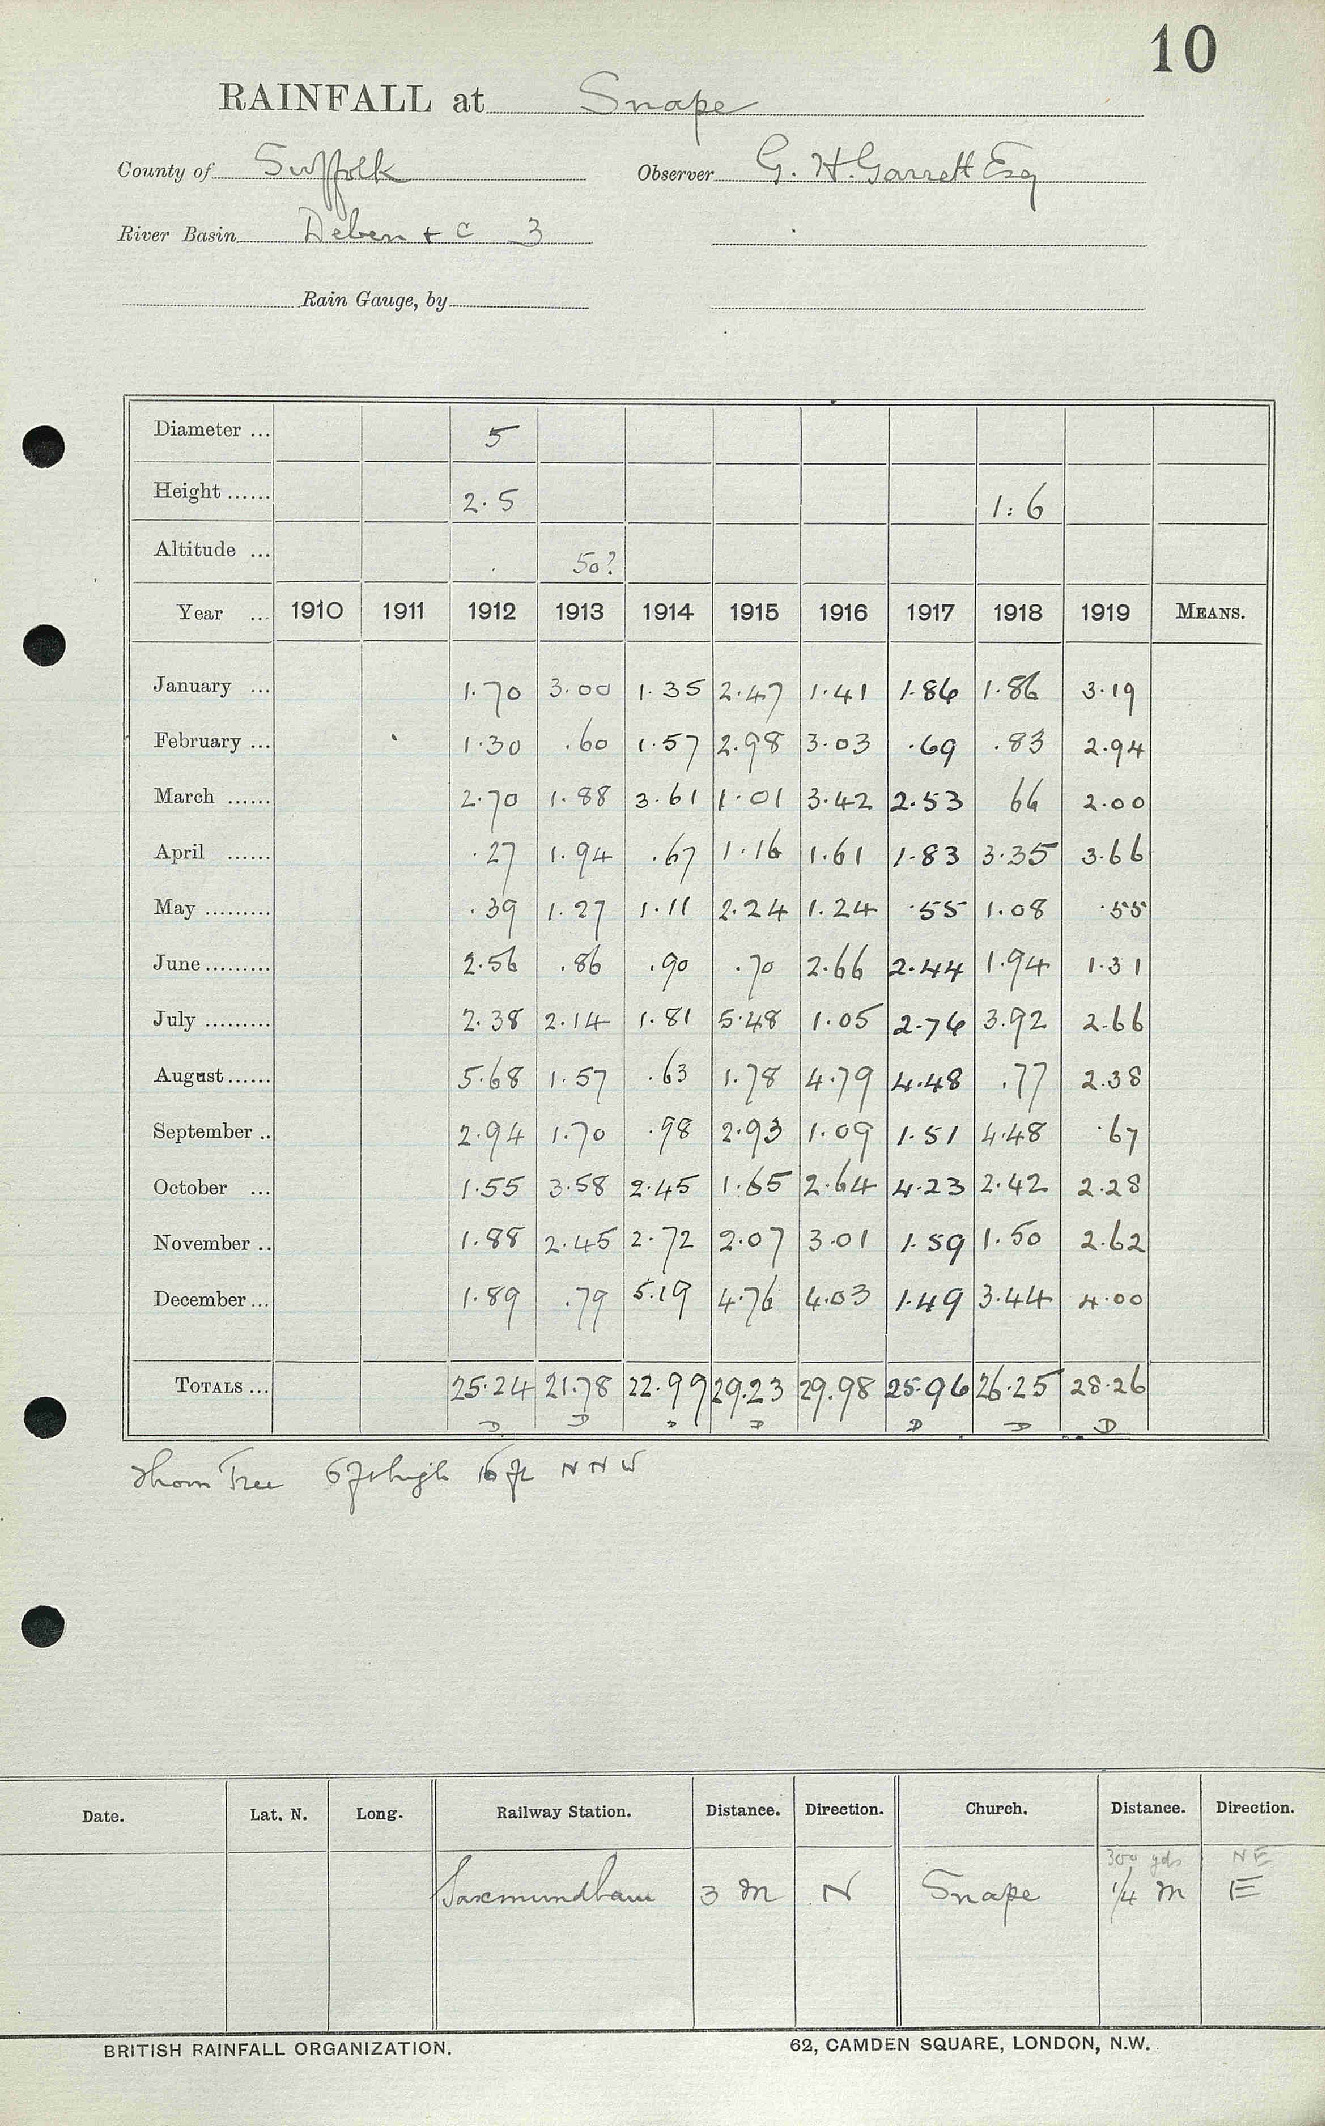 10
RAINFALL at Snape
County of Suffolk Observer G. H. Garrett Esq
River Basin Deben + C 3
Rain Gauge, by
Diameter ... 5
Height ...... 2.5 1:6
Altitude ... 50?
Year ... 1910 1911 1912 1913 1914 1915 1916 1917 1918 1919 MEANS.
January ... 1.70 3.00 1.35 2.47 1.41 1.86 1.86 3.19
February ... 1.30 .60 1.57 2.98 3.03 .69 .83 2.94
March ...... 2.70 1.88 3.61 1.01 3.42 2.53 66 2.00
April ...... .27 1.94 .67 1.16 1.61 1.83 3.35 3.66
May ......... .39 1.27 1.11 2.24 1.24 .55 1.08 .55
June ......... 2.56 .86 .90 .70 2.66 2.44 1.94 1.31
July ......... 2.38 2.14 1.81 5.48 1.05 2.76 3.92 2.66
August ...... 5.68 1.57 .63 1.78 4.79 4.48 .77 2.38
September .. 2.94 1.70 .98 2.93 1.09 1.51 4.48 .67
October ... 1.55 3.58 2.45 1.65 2.64 4.23 2.42 2.28
November .. 1.88 2.45 2.72 2.07 3.01 1.59 1.50 2.62
December ... 1.89 .79 5.19 4.76 4.03 1.49 3.44 4.00
TOTALS ... 25.24 21.78 22.99 29.23 29.98 25.96 26.25 28.26
D D D D D D D
Thorn Tree 6 ft high 16 ft NNW
Date. Lat. N. Long. Railway Station. Distance. Direction. Church. Distance. Direction.
300 yds NE
Saxmundham 3 m N Snape 1/4 m E
BRITISH RAINFALL ORGANIZATION. 62, CAMDEN SQUARE, LONDON, N.W.